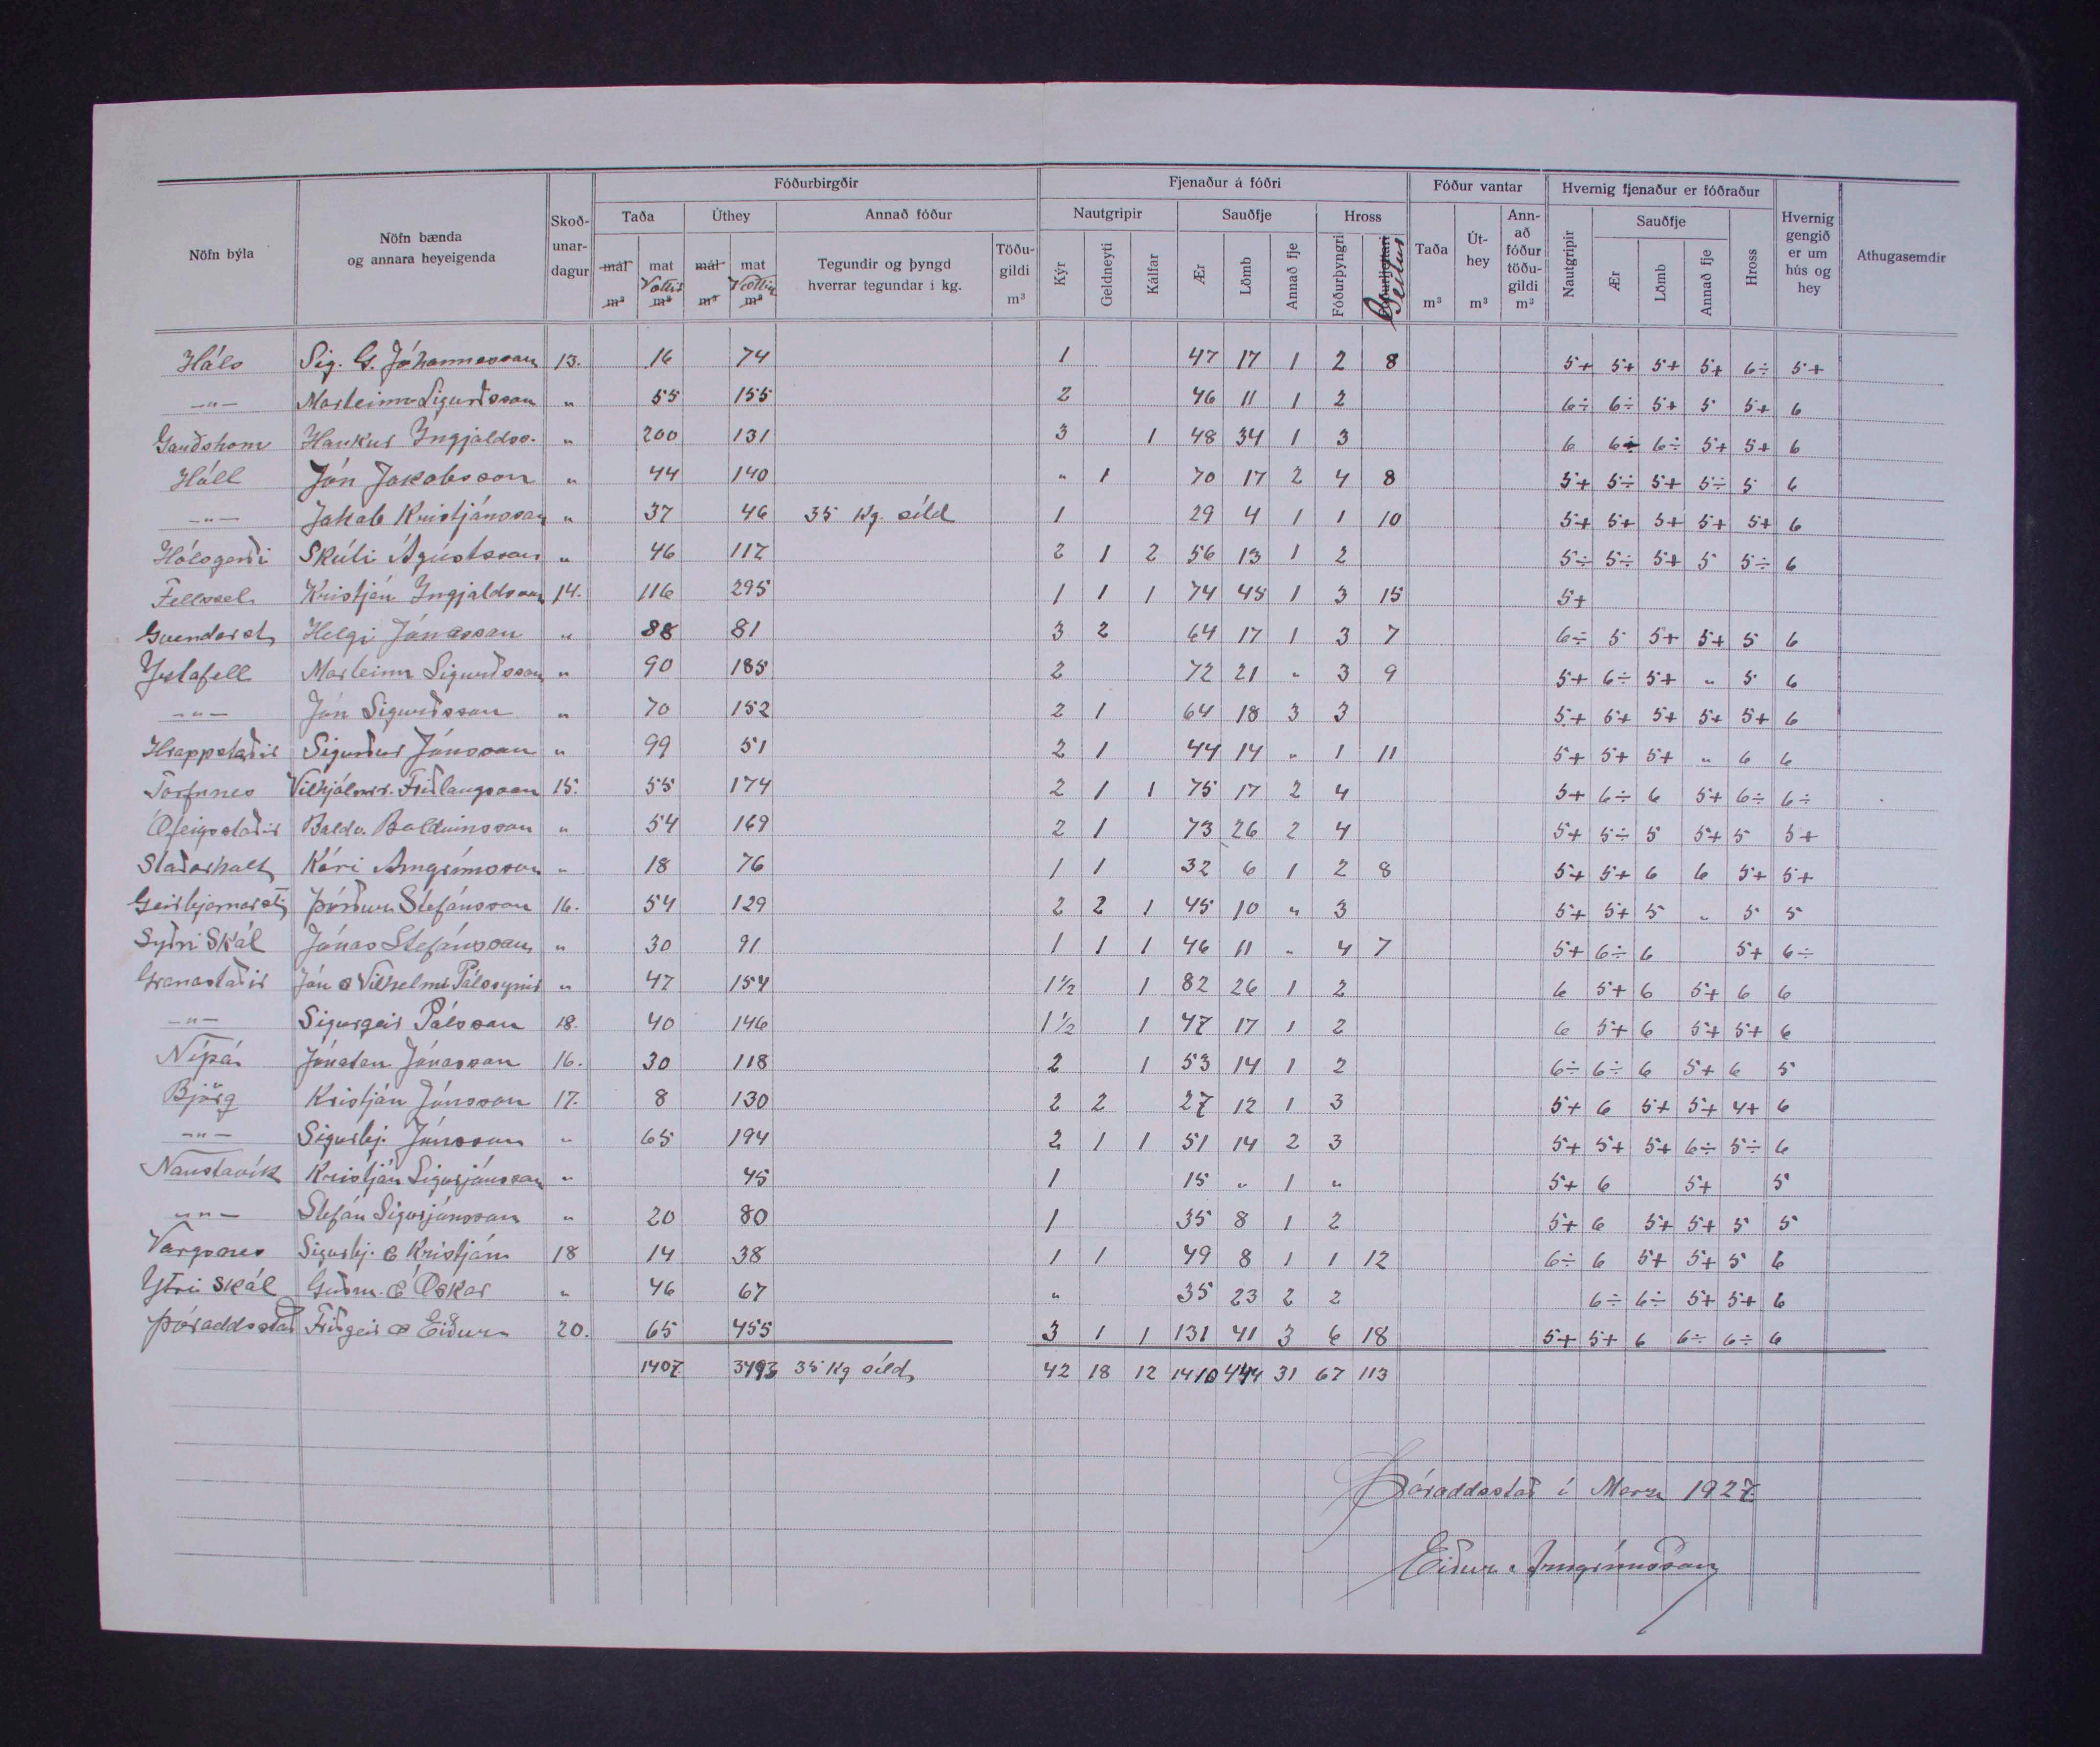 Nöfn býla | Nöfn bænda og annara heyeigenda | Skoð-unar-dagur | Fóðurbirgðir | Fjenaður á fóðri | Fóður vantar | Hvernig fjenaður er fóðraður | Hvernig gengið er um hús og hey | Athugasemdir
Taða | Úthey | Annað fóður | Nautgripir | Sauðfje | Hross | Taða m³ | Út-hey m³ | Ann-að fóður töðu-gildi m³ | Nautgripir | Sauðfje | Hross
mál m³ | mat Vættir m³ | mál m³ | mat Vættir m³ | Tegundir og þyngd hverrar tegundar í kg. | Töðu-gildi m³ | Kýr | Geldneyti | Kálfar | Ær | Lömb | Annað fje | Fóðurþyngri | Beitar | Ær | Lömb | Annað fje
Háls | Sig. G. Jóhannesson | 13. | 16 | 74 | 1 | 47 | 17 | 1 | 2 | 8 | 5+ | 5+ | 5+ | 5+ | 6÷ | 5+
-"- | Marteinn Sigurðsson | " | 55 | 155 | 2 | 46 | 11 | 1 | 2 | 6÷ | 6÷ | 5+ | 5 | 5+ | 6
Garðshorn | Haukur Ingjaldss. | " | 200 | 131 | 3 | 1 | 48 | 34 | 1 | 3 | 6 | 6÷ | 6÷ | 5+ | 5+ | 6
Hóll | Jón Jakobsson | " | 44 | 140 | " | 1 | 70 | 17 | 2 | 4 | 8 | 5+ | 5÷ | 5+ | 5÷ | 5 | 6
-"- | Jakob Kristjánsson | " | 37 | 46 | 35 kg. síld | 1 | 29 | 4 | 1 | 1 | 10 | 5+ | 5+ | 5+ | 5+ | 5+ | 6
Hálsgerði | Skúli Ágústsson | " | 46 | 117 | 2 | 1 | 2 | 56 | 13 | 1 | 2 | 5÷ | 5÷ | 5+ | 5 | 5÷ | 6
Fellssel | Kristján Ingjaldsson | 14. | 116 | 295 | 1 | 1 | 1 | 74 | 45 | 1 | 3 | 15 | 5+
Gvendarst | Helgi Jónasson | " | 88 | 81 | 3 | 2 | 64 | 17 | 1 | 3 | 7 | 6÷ | 5 | 5+ | 5+ | 5 | 6
Ystafell | Marteinn Sigurðsson | " | 90 | 185 | 2 | 72 | 21 | " | 3 | 9 | 5+ | 6÷ | 5+ | " | 5 | 6
-"- | Jón Sigurðsson | " | 70 | 152 | 2 | 1 | 64 | 18 | 3 | 3 | 5+ | 5+ | 5+ | 5+ | 5+ | 6
Hrappstaðir | Sigurður Jónsson | " | 99 | 51 | 2 | 1 | 44 | 14 | " | 1 | 11 | 5+ | 5+ | 5+ | " | 6 | 6
Torfunes | Vilhjálmur Friðlaugsson | 15. | 55 | 174 | 2 | 1 | 1 | 75 | 17 | 2 | 4 | 5+ | 6÷ | 6 | 5+ | 6÷ | 6÷
Ófeigsstaðir | Baldv. Baldvinsson | " | 54 | 169 | 2 | 1 | 73 | 26 | 2 | 4 | 5+ | 5÷ | 5 | 5+ | 5 | 5+
Staðarholt | Kári Arngrímsson | " | 18 | 76 | 1 | 1 | 32 | 6 | 1 | 2 | 8 | 5+ | 5+ | 6 | 6 | 5+ | 5+
Geirbjarnarst | Þórður Stefánsson | 16. | 54 | 129 | 2 | 2 | 1 | 45 | 10 | " | 3 | 5+ | 5+ | 5 | " | 5 | 5
Syðri Skál | Jónas Stefánsson | " | 30 | 91 | 1 | 1 | 1 | 46 | 11 | " | 4 | 7 | 5+ | 6÷ | 6 | 5+ | 6÷
Granastaðir | Jón & Vilhelm Pálssynir | " | 47 | 154 | 1½ | 1 | 82 | 26 | 1 | 2 | 6 | 5+ | 6 | 5+ | 6 | 6
-"- | Sigurgeir Pálsson | 18. | 40 | 146 | 1½ | 1 | 47 | 17 | 1 | 2 | 6 | 5+ | 6 | 5+ | 5+ | 6
Nípá | Jónatan Jónasson | 16. | 30 | 118 | 2 | 1 | 53 | 14 | 1 | 2 | 6÷ | 6÷ | 6 | 5+ | 6 | 5
Björg | Kristján Jónsson | 17. | 8 | 130 | 2 | 2 | 27 | 12 | 1 | 3 | 5+ | 6 | 5+ | 5+ | 4+ | 6
-"- | Sigurbj. Jónsson | " | 65 | 194 | 2 | 1 | 1 | 51 | 14 | 2 | 3 | 5+ | 5+ | 5+ | 6÷ | 5÷ | 6
Naustavík | Kristján Sigurjónsson | " | 45 | 1 | 15 | " | 1 | " | 5+ | 6 | 5+ | 5
-"- | Stefán Sigurjónsson | " | 20 | 80 | 1 | 35 | 8 | 1 | 2 | 5+ | 6 | 5+ | 5+ | 5 | 5
Vargsnes | Sigurbj. & Kristján | 18 | 14 | 38 | 1 | 1 | 49 | 8 | 1 | 1 | 12 | 6÷ | 6 | 5+ | 5+ | 5 | 6
Ytri Skál | Guðm. & Óskar | " | 46 | 67 | " | 35 | 23 | 2 | 2 | 6÷ | 6÷ | 5+ | 5+ | 6
Þóroddsstað | Friðgeir & Eiður | 20. | 65 | 455 | 3 | 1 | 1 | 131 | 41 | 3 | 6 | 18 | 5+ | 5+ | 6 | 6÷ | 6÷ | 6
1407 | 3493 | 35 kg síld | 42 | 18 | 12 | 1410 | 444 | 31 | 67 | 113
Þóroddsstað í Marz 1927.
Eiður Arngrímsson